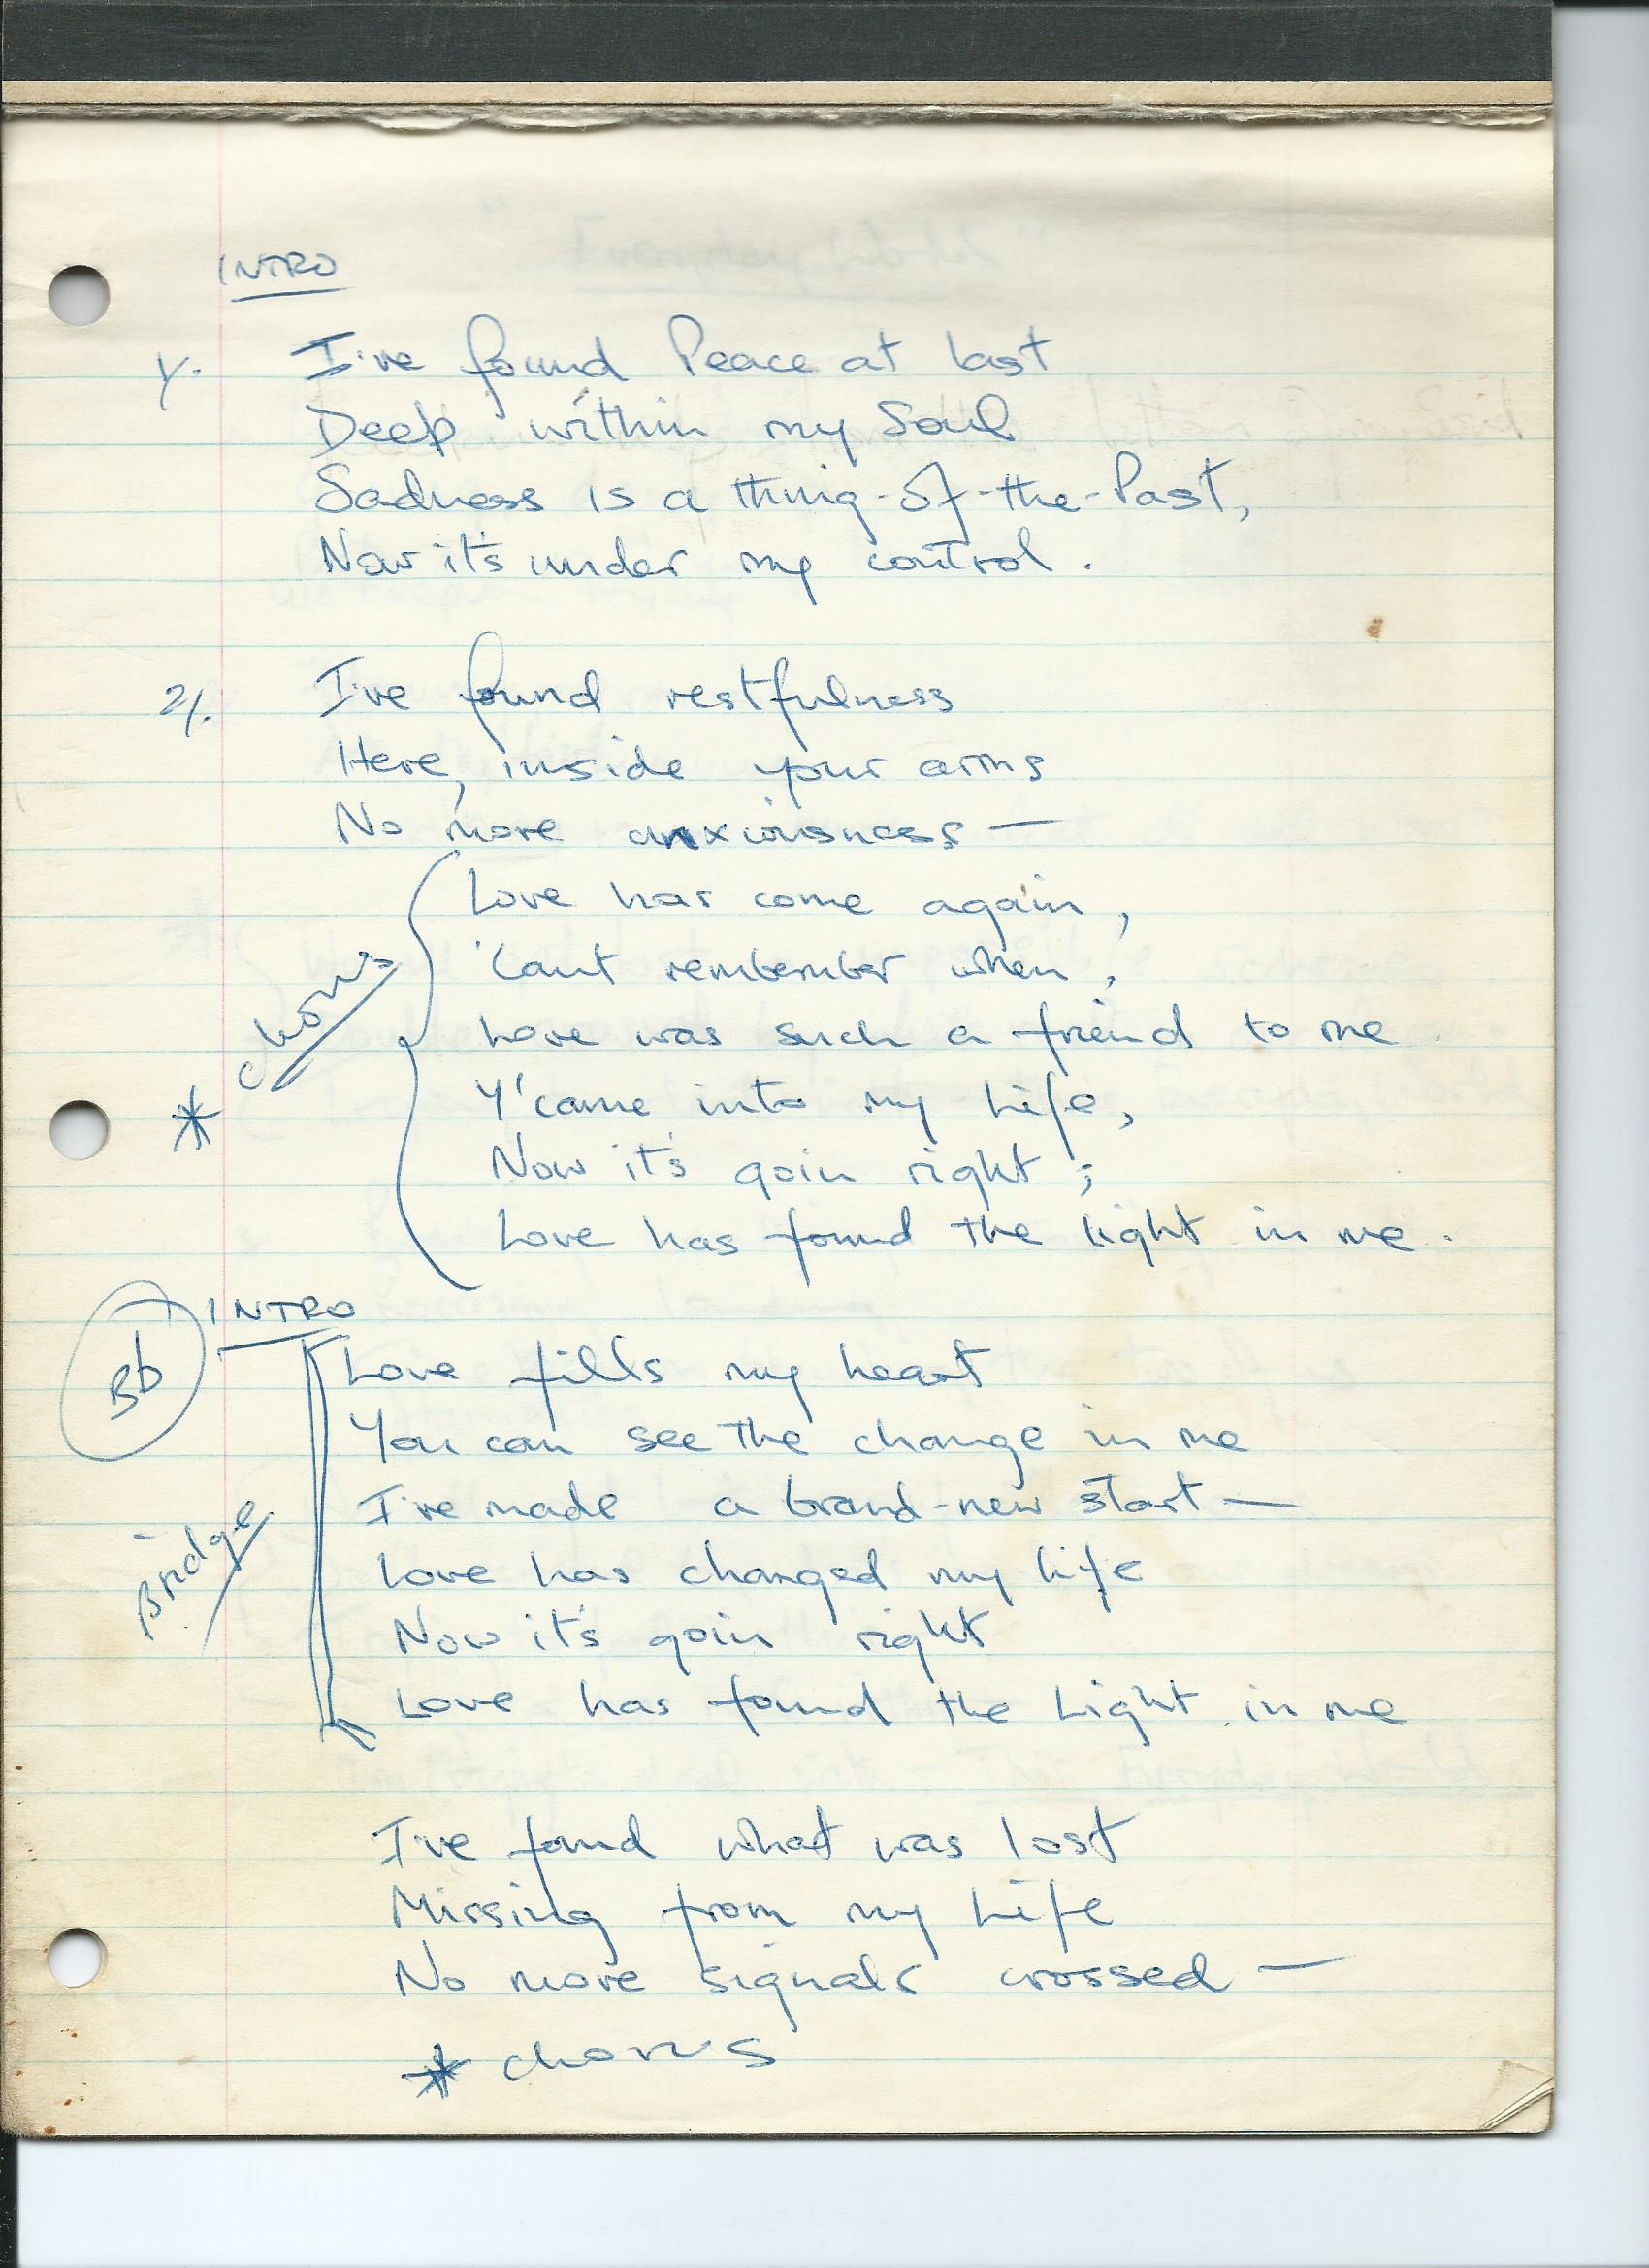 INTRO
1/. I've found Peace at last
Deep within my Soul
Sadness is a thing-of-the-Past,
Now it's under my control.
2/. I've found restfulness
Here, inside your arms
No more anxiousness —
* chorus
Love has come again,
'Cant rembember when,
Love was such a friend to me.
Y'came into my Life,
Now it's goin right;
Love has found the light in me.
Bb
INTRO
Bridge
Love fills my heart
You can see the change in me
I've made a brand-new start —
Love has changed my life
Now it's goin right
Love has found the Light in me
I've found what was lost
Missing from my Life
No more signals crossed —
* chorus